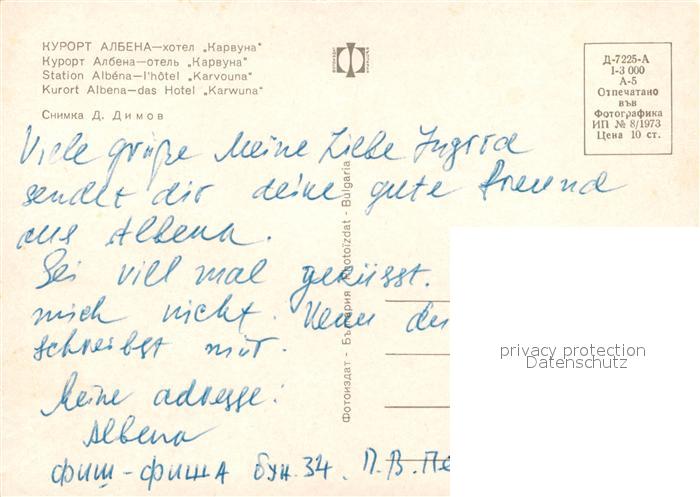 КУРОРТ АЛБЕНА—хотел „Карвуна“
Курорт Албена—отель „Карвуна“
Station Albéna—l'hôtel „Karvouna“
Kurort Albena—das Hotel „Karwuna“
Снимка Д. Димов
Д-7225-А
1-3 000
А-5
Отпечатано
във
Фотографика
ИП № 8/1973
Цена 10 ст.
Viele grüße Meine Liebe Ingrid
sendet dir deine gute freund
aus Albena.
Sei vill mal geküsst.
mich nicht. Wenn du
schreibst mir.
Meine adresse:
Albena
фиш-фиша бун. 34. П.В. Пе
Фотоиздат - България - Photoizdat - Bulgaria
privacy protection
Datenschutz